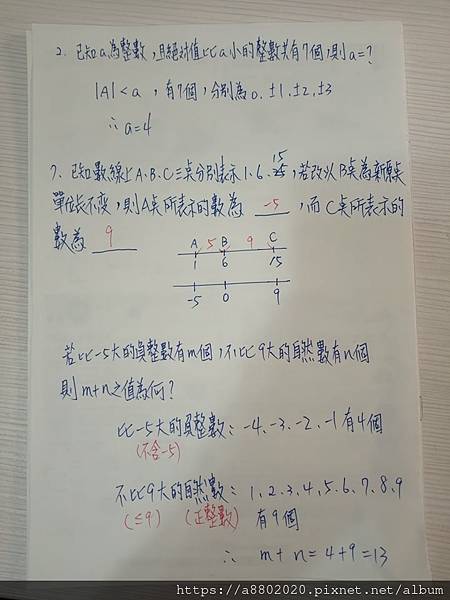 2. 已知a為整數，且絕對值比a小的整數共有7個，則a=?
|A|<a ，有7個，分別為0、±1、±2、±3
∴ a=4
7. 已知數線上A、B、C三點分別表示1、6、15，若改以B點為新原點
單位長不变，則A点所表示的數為 -5 ，而C点所表示的
數為 9
A 5 B 9 C
1 6 15
-5 0 9
若比-5大的負整數有m個，不比9大的自然數有n個
則m+n之值為何？
比-5大的負整數：-4、-3、-2、-1 有4個
(不含-5)
不比9大的自然數：1、2、3、4、5、6、7、8、9
(≤9) (正整數) 有9個
∴ m+n=4+9=13
https://a8802020.pixnet.net/album